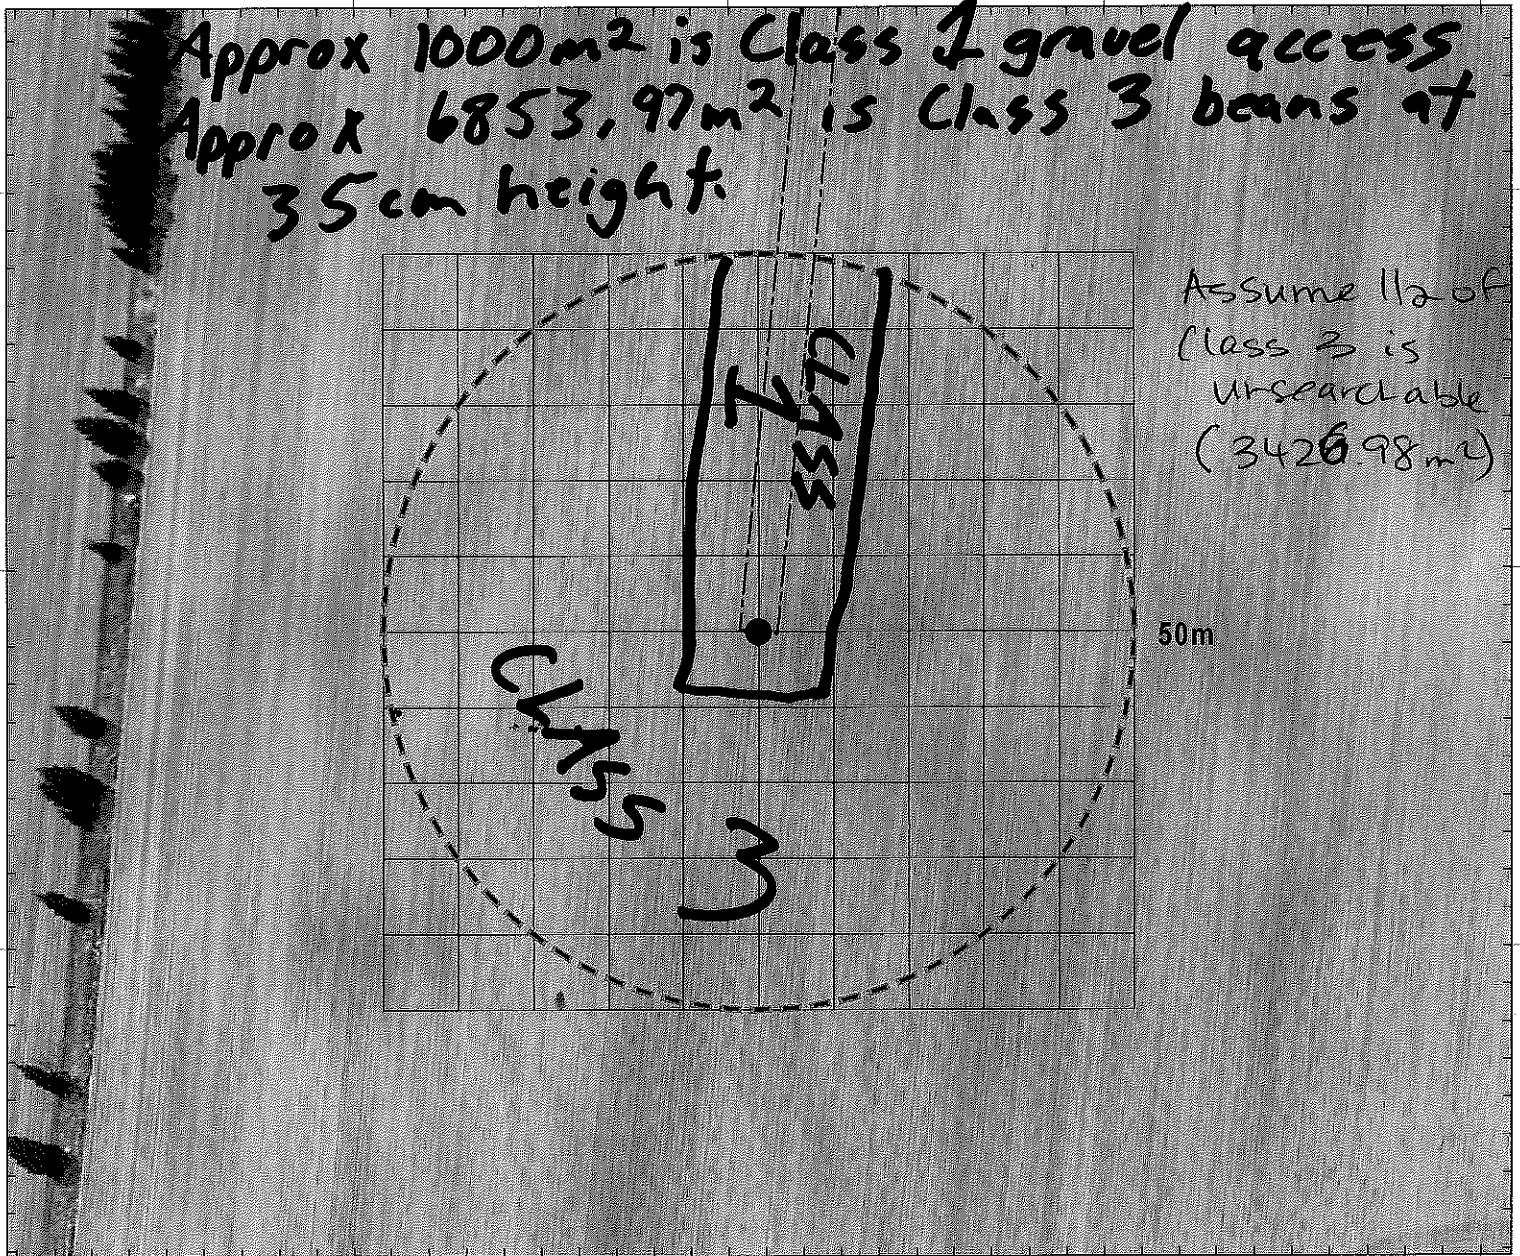 Approx 1000m² is Class 1 gravel access
Approx 6853,97m² is Class 3 beans at
35cm height.
Assume 1/2 of
Class 3 is
unsearchable
(3426.98m²)
CLASS
1
50m
CLASS
3